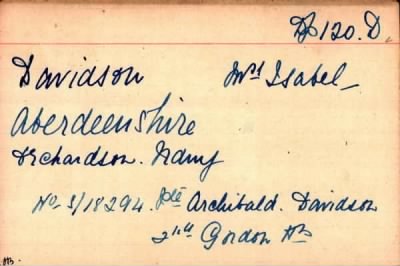 D/120.D.
Davidson Mrs Isabel
Aberdeenshire
Richardson.
No S/18294. Pte Archibald. Davidson
2nd Gordon Hrs